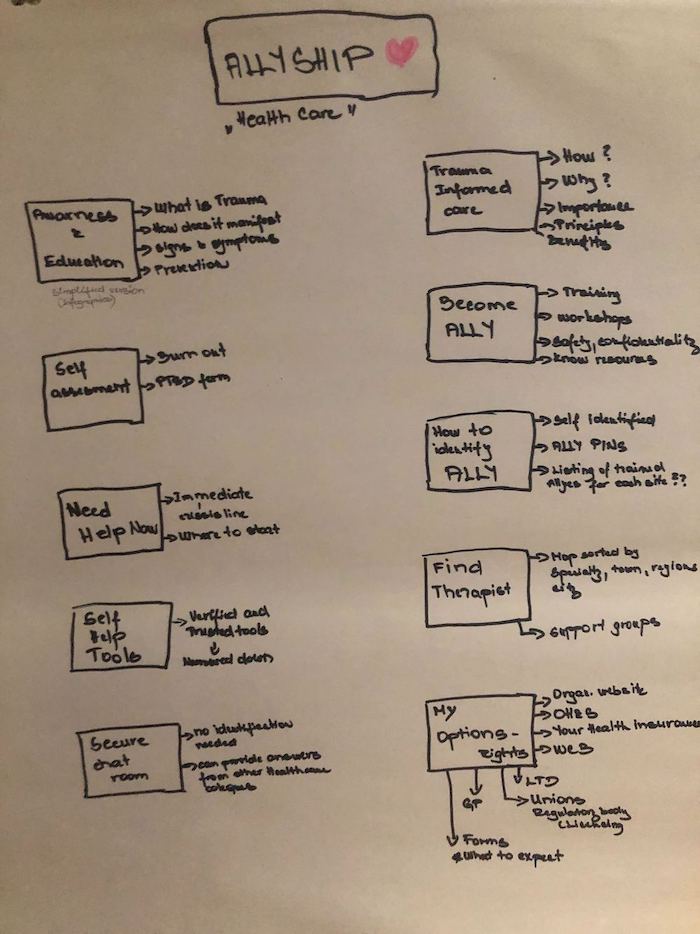 ALLYSHIP
"Health Care"
Awarness
&
Education
What is Trauma
How does it manifest
signs & symptoms
Prevention
simplified version
(infographics)
Self
assesment
Burn out
PTSD form
Need
Help Now
Immediate
crisis line
Where to start
Self
Help
Tools
Verified and
Trusted tools
Numbered down
Secure
chat
room
no identification
needed
can provide answers
from other Healthcare
Trauma
Informed
care
How?
Why?
Importance
Principles
benefits
Become
ALLY
Training
workshops
Safety, confidentiality
know resources
How to
identify
ALLY
Self identified
ALLY PINS
Listing of trained
Allyes for each site??
Find
Therapist
Map sorted by
Specialty, town, regions
city
support groups
My
options-
rights
Organ. website
OH&S
Your Health insurance
WCB
LTD
Unions
Regulatory body
GP
Forms
& What to expect